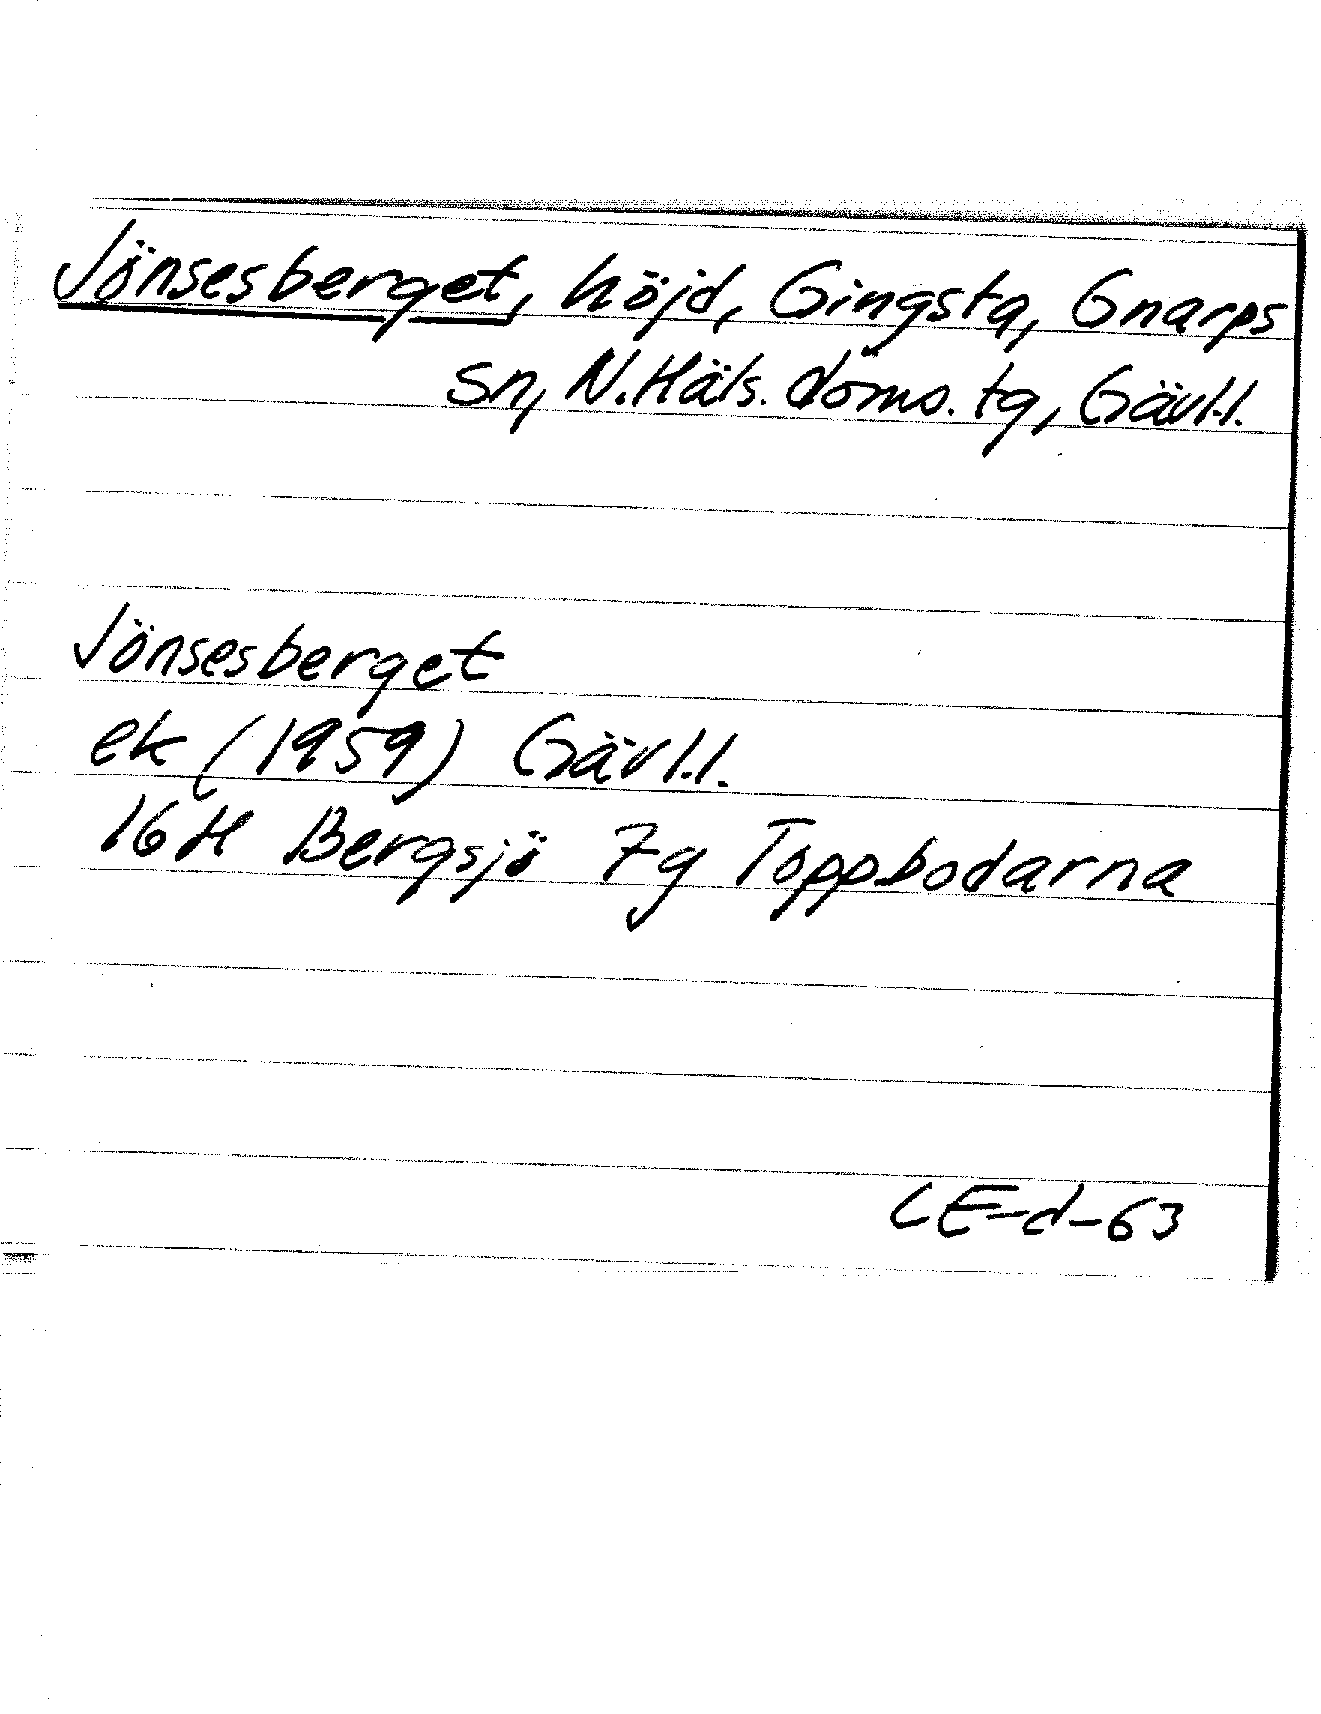 Jönsesberget, höjd, Gingsta, Gnarps
sn, N. Häls. doms. tg, Gävl.l.
Jönsesberget
ek (1959) Gävl.l.
16H Bergsjö 7g Toppbodarna
LE-d-63